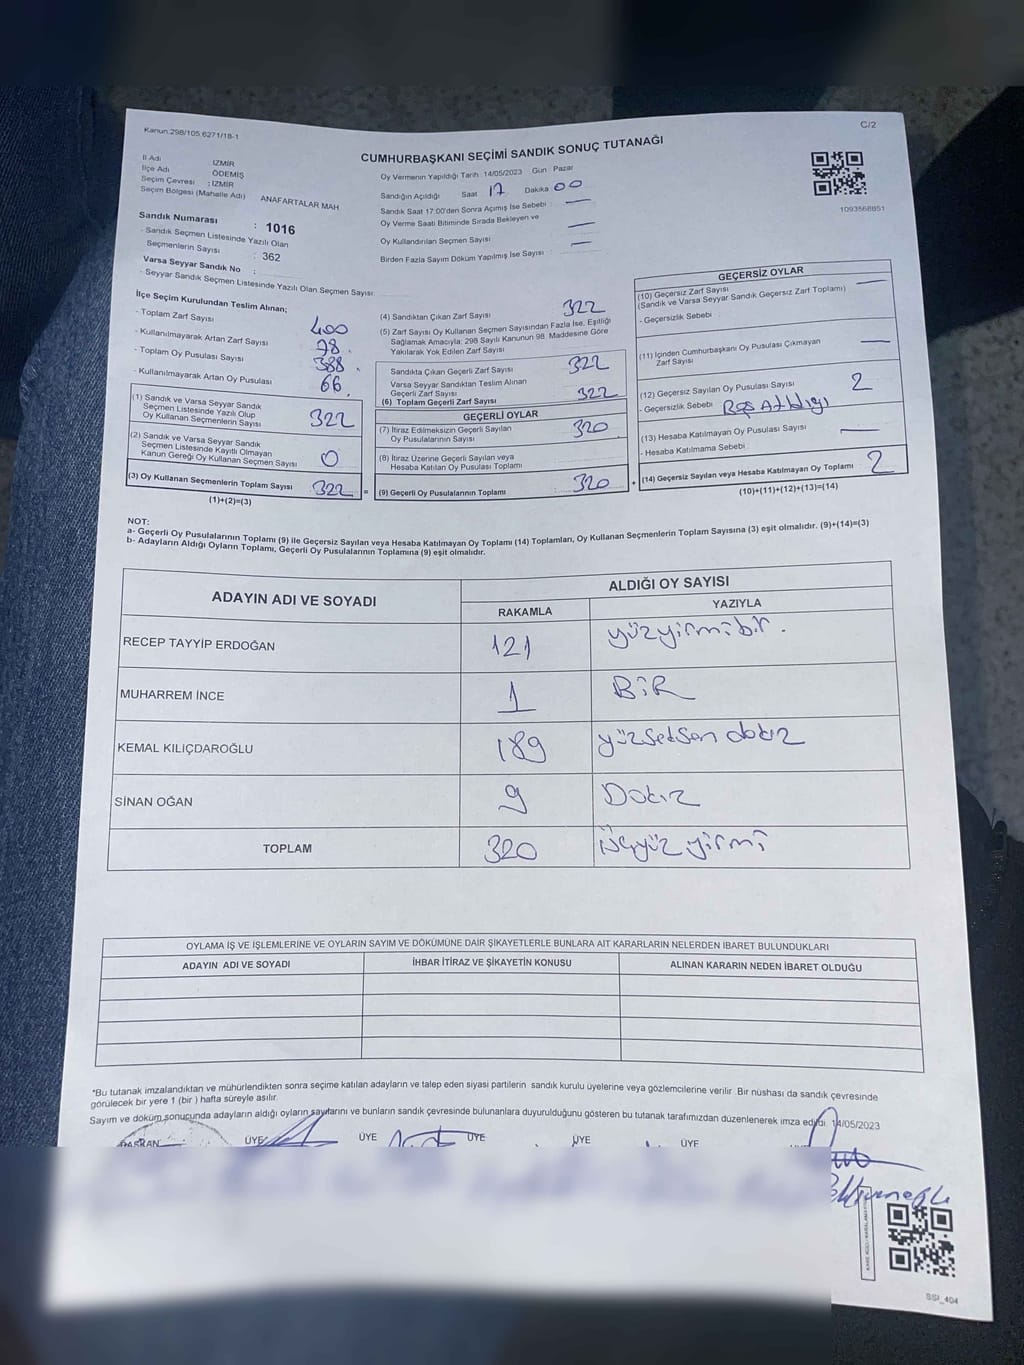 Kanun:298/105,6271/18-1
C/2
CUMHURBAŞKANI SEÇİMİ SANDIK SONUÇ TUTANAĞI
İl Adı İZMİR
İlçe Adı ÖDEMİŞ
Seçim Çevresi : İZMİR
Seçim Bölgesi (Mahalle Adı) ANAFARTALAR MAH
Sandık Numarası : 1016
- Sandık Seçmen Listesinde Yazılı Olan
Seçmenlerin Sayısı : 362
Varsa Seyyar Sandık No :
- Seyyar Sandık Seçmen Listesinde Yazılı Olan Seçmen Sayısı:
Oy Vermenin Yapıldığı Tarih 14/05/2023 Gün Pazar
Sandığın Açıldığı Saat 17 Dakika 00
Sandık Saat 17:00'den Sonra Açımış İse Sebebi : —
Oy Verme Saati Bitiminde Sırada Bekleyen ve
Oy Kullandırılan Seçmen Sayısı —
Birden Fazla Sayım Döküm Yapılmış İse Sayısı : —
1093568851
İlçe Seçim Kurulundan Teslim Alınan;
- Toplam Zarf Sayısı 400
- Kullanılmayarak Artan Zarf Sayısı 78
- Toplam Oy Pusulası Sayısı 388
- Kullanılmayarak Artan Oy Pusulası 66
(1) Sandık ve Varsa Seyyar Sandık
Seçmen Listesinde Yazılı Olup
Oy Kullanan Seçmenlerin Sayısı 322
(2) Sandık ve Varsa Seyyar Sandık
Seçmen Listesinde Kayıtlı Olmayan
Kanun Gereği Oy Kullanan Seçmen Sayısı 0
(3) Oy Kullanan Seçmenlerin Toplam Sayısı 322 =
(1)+(2)=(3)
(4) Sandıktan Çıkan Zarf Sayısı 322
(5) Zarf Sayısı Oy Kullanan Seçmen Sayısından Fazla İse, Eşitliği
Sağlamak Amacıyla; 298 Sayılı Kanunun 98. Maddesine Göre
Yakılarak Yok Edilen Zarf Sayısı
Sandıkta Çıkan Geçerli Zarf Sayısı 322
Varsa Seyyar Sandıktan Teslim Alınan
Geçerli Zarf Sayısı
(6) Toplam Geçerli Zarf Sayısı 322
GEÇERLİ OYLAR
(7) İtiraz Edilmeksizin Geçerli Sayılan
Oy Pusulalarının Sayısı 320
(8) İtiraz Üzerine Geçerli Sayılan veya
Hesaba Katılan Oy Pusulası Toplamı
(9) Geçerli Oy Pusulalarının Toplamı : 320 +
GEÇERSİZ OYLAR
(10) Geçersiz Zarf Sayısı
(Sandık ve Varsa Seyyar Sandık Geçersiz Zarf Toplamı) —
- Geçersizlik Sebebi :
(11) İçinden Cumhurbaşkanı Oy Pusulası Çıkmayan
Zarf Sayısı —
(12) Geçersiz Sayılan Oy Pusulası Sayısı 2
- Geçersizlik Sebebi :
(13) Hesaba Katılmayan Oy Pusulası Sayısı —
- Hesaba Katılmama Sebebi :
(14) Geçersiz Sayılan veya Hesaba Katılmayan Oy Toplamı : 2
(10)+(11)+(12)+(13)=(14)
NOT:
a- Geçerli Oy Pusulalarının Toplamı (9) ile Geçersiz Sayılan veya Hesaba Katılmayan Oy Toplamı (14) Toplamları, Oy Kullanan Seçmenlerin Toplam Sayısına (3) eşit olmalıdır. (9)+(14)=(3)
b- Adayların Aldığı Oyların Toplamı, Geçerli Oy Pusulalarının Toplamına (9) eşit olmalıdır.
ADAYIN ADI VE SOYADI ALDIĞI OY SAYISI
RAKAMLA YAZIYLA
RECEP TAYYİP ERDOĞAN 121 yüzyirmibir.
MUHARREM İNCE 1 BİR
KEMAL KILIÇDAROĞLU 189 yüzseksen dokuz
SİNAN OĞAN 9 Dokuz
TOPLAM 320 üçyüz yirmi
OYLAMA İŞ VE İŞLEMLERİNE VE OYLARIN SAYIM VE DÖKÜMÜNE DAİR ŞİKAYETLERLE BUNLARA AİT KARARLARIN NELERDEN İBARET BULUNDUKLARI
ADAYIN ADI VE SOYADI İHBAR İTİRAZ VE ŞİKAYETİN KONUSU ALINAN KARARIN NEDEN İBARET OLDUĞU
*Bu tutanak imzalandıktan ve mühürlendikten sonra seçime katılan adayların ve talep eden siyasi partilerin sandık kurulu üyelerine veya gözlemcilerine verilir. Bir nüshası da sandık çevresinde
görülecek bir yere 1 (bir) hafta süreyle asılır.
Sayım ve döküm sonucunda adayların aldığı oyların sayılarını ve bunların sandık çevresinde bulunanlara duyurulduğunu gösteren bu tutanak tarafımızdan düzenlenerek imza edildi. 14/05/2023
BAŞKAN ÜYE ÜYE ÜYE ÜYE ÜYE
SSI_404